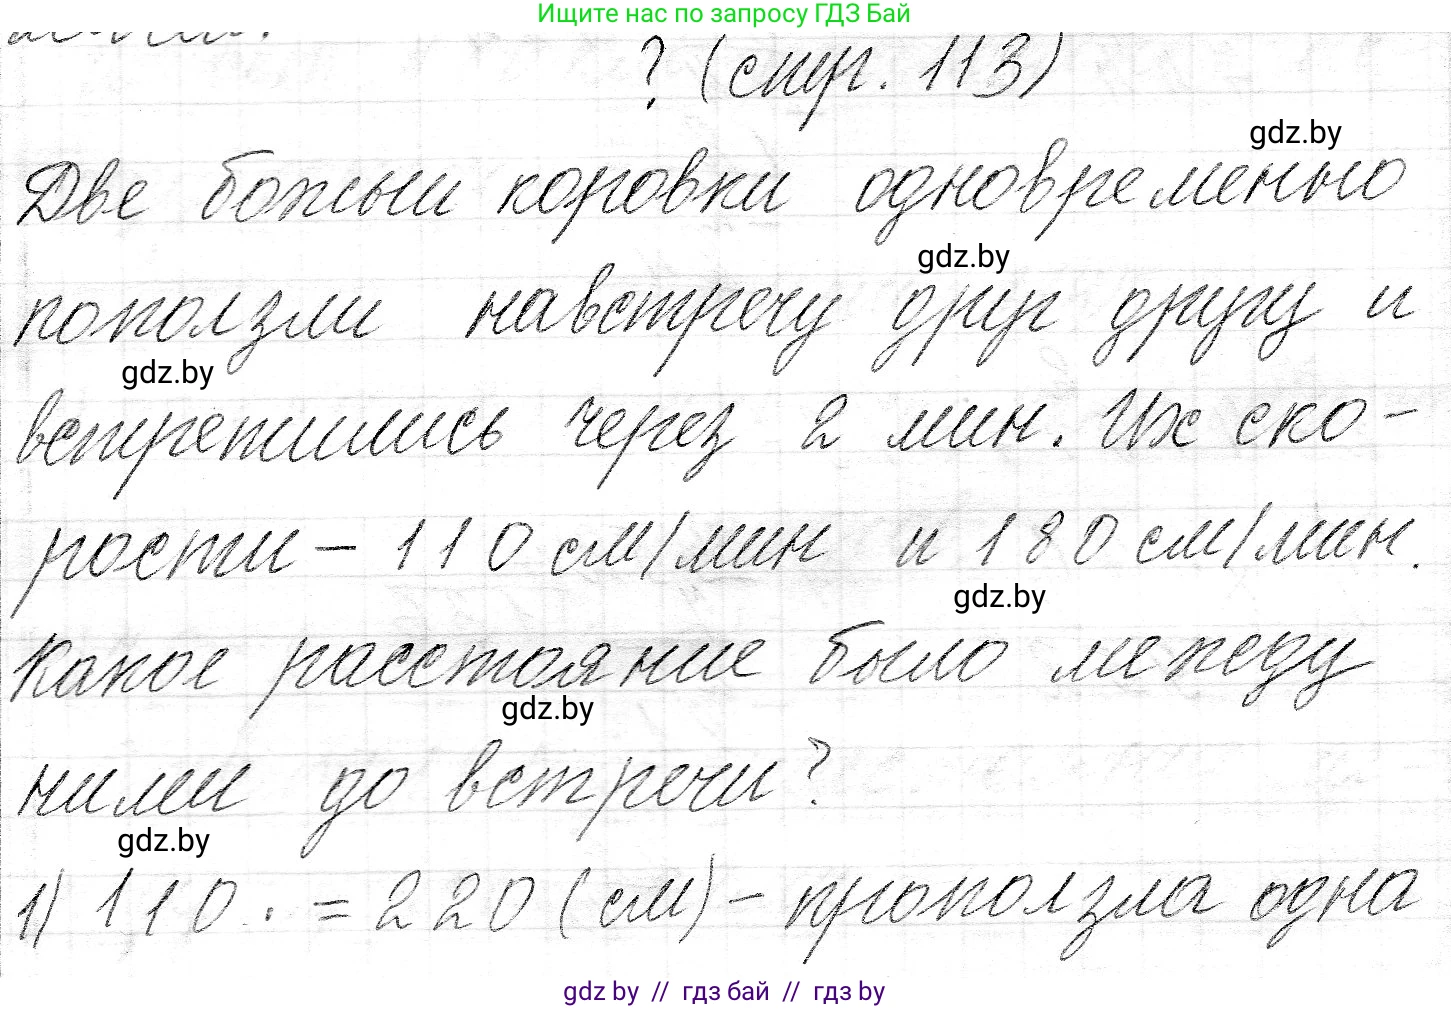 Ищите нас по запросу ГДЗ Бай
? (стр. 113)
gdz.by
Две божьи коровки одновременно
gdz.by
поползли навстречу друг другу и
gdz.by
встретились через 2 мин. Их ско-
рости – 110 см/мин и 180 см/мин.
gdz.by
Какое расстояние было между
gdz.by
ними до встречи?
gdz.by
1) 110 · = 220 (см) – проползла одна
gdz by // гдз бай // гдз by